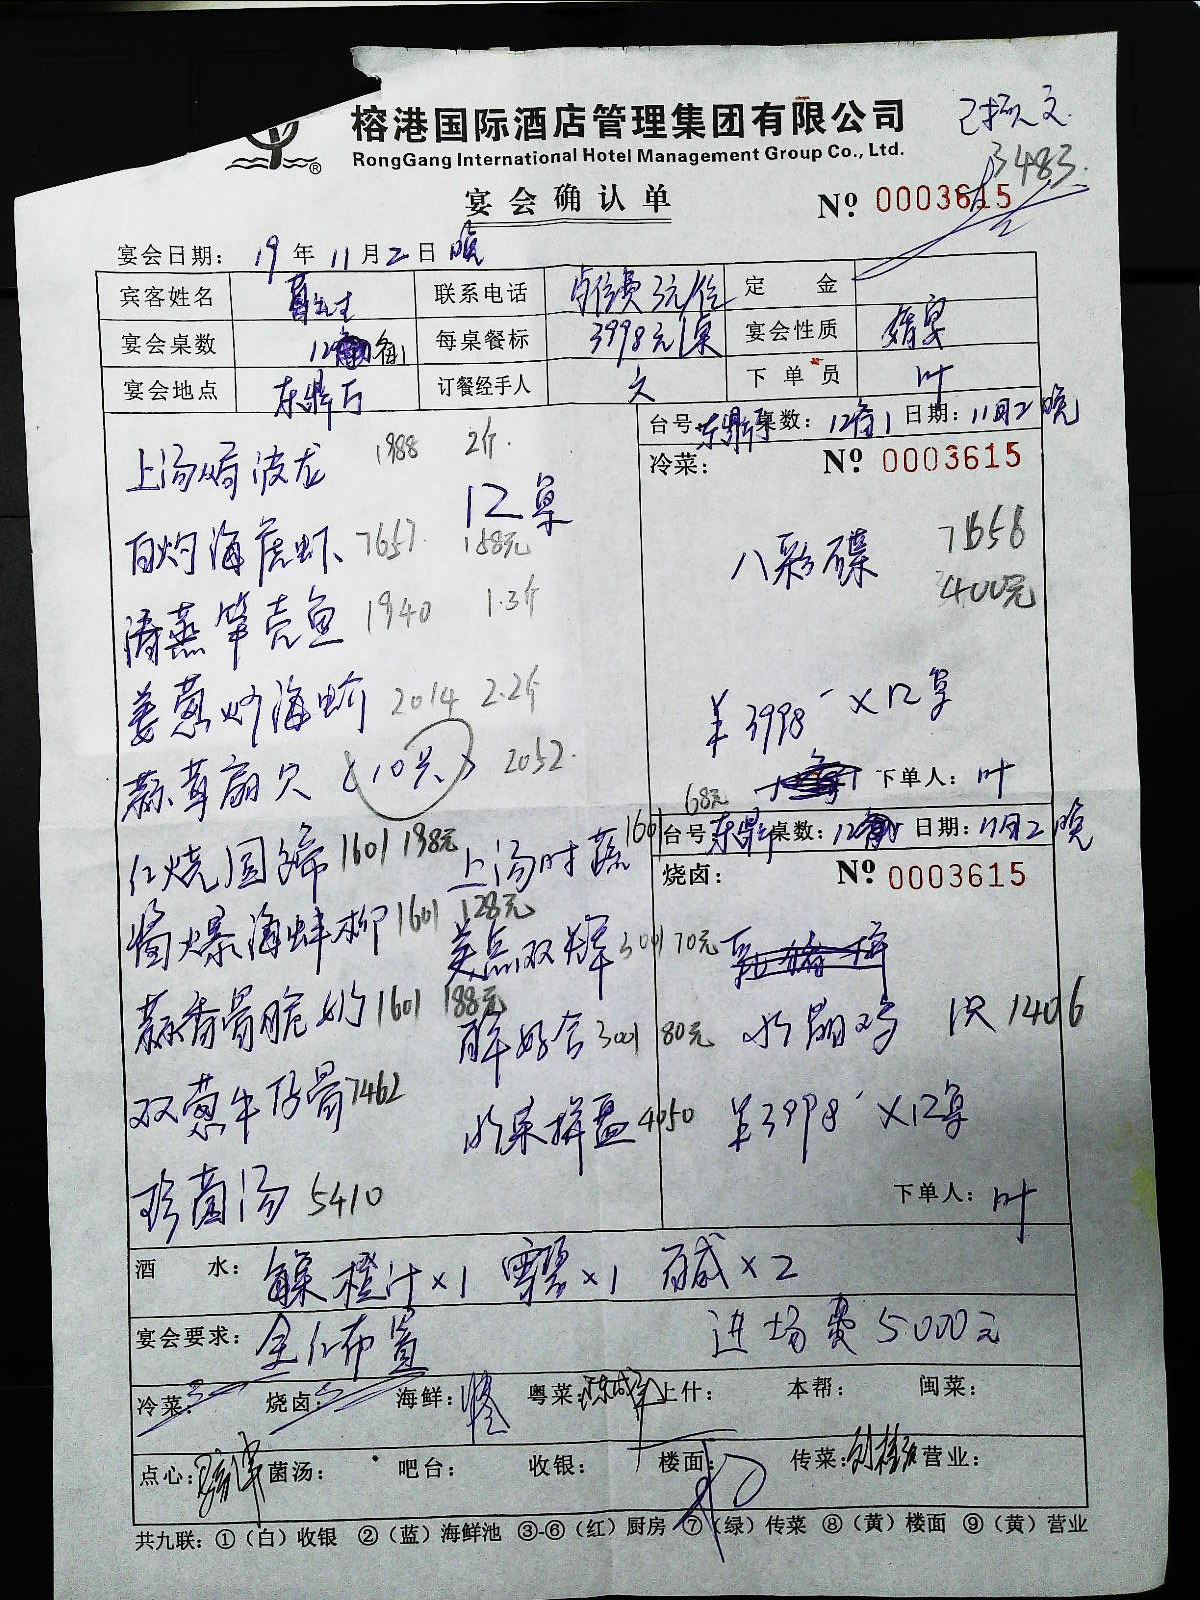 榕港国际酒店管理集团有限公司
RongGang International Hotel Management Group Co., Ltd.
宴会确认单
№ 0003615
3483
宴会日期: 19年11月2日晚
宾客姓名 联系电话 卓位费3元/位 定金
宴会桌数 12 每桌餐标 3998元/桌 宴会性质 婚宴
宴会地点 东鼎厅 订餐经手人 文 下单员 叶
台号 东鼎厅 桌数: 12 日期: 11月2晚
冷菜: № 0003615
上汤焗波龙 1988 2个
12桌
白灼海虎虾 7657 188元
清蒸笋壳鱼 1940 1.3个
姜葱炒海蚧 2014 2.2个
蒜茸扇穴 (10只) 2052
红烧圆蹄 1601 198元
酱爆海蚌柳 1601 128元
蒜香骨脆奶 1601 188元
双葱牛仔骨 7462
珍菌汤 5410
上汤时蔬 1601 68元
美点双辉 3001 70元
百年好合 3001 80元
水果拼盘 4050
八彩碟
400元
¥3998 × 12桌
下单人: 叶
台号 东鼎 桌数: 12 日期: 11月2晚
烧卤: № 0003615
水晶鸡 1只 1406
¥3998 × 12桌
下单人: 叶
酒水: 橙汁×1 雪碧×1 ×2
宴会要求: 全红布置 进场费5000元
冷菜: 烧卤: 海鲜: 粤菜: 上什: 本帮: 闽菜:
点心: 菌汤: 吧台: 收银: 楼面: 传菜: 营业:
共九联: ①(白)收银 ②(蓝)海鲜池 ③-⑥(红)厨房 ⑦(绿)传菜 ⑧(黄)楼面 ⑨(黄)营业